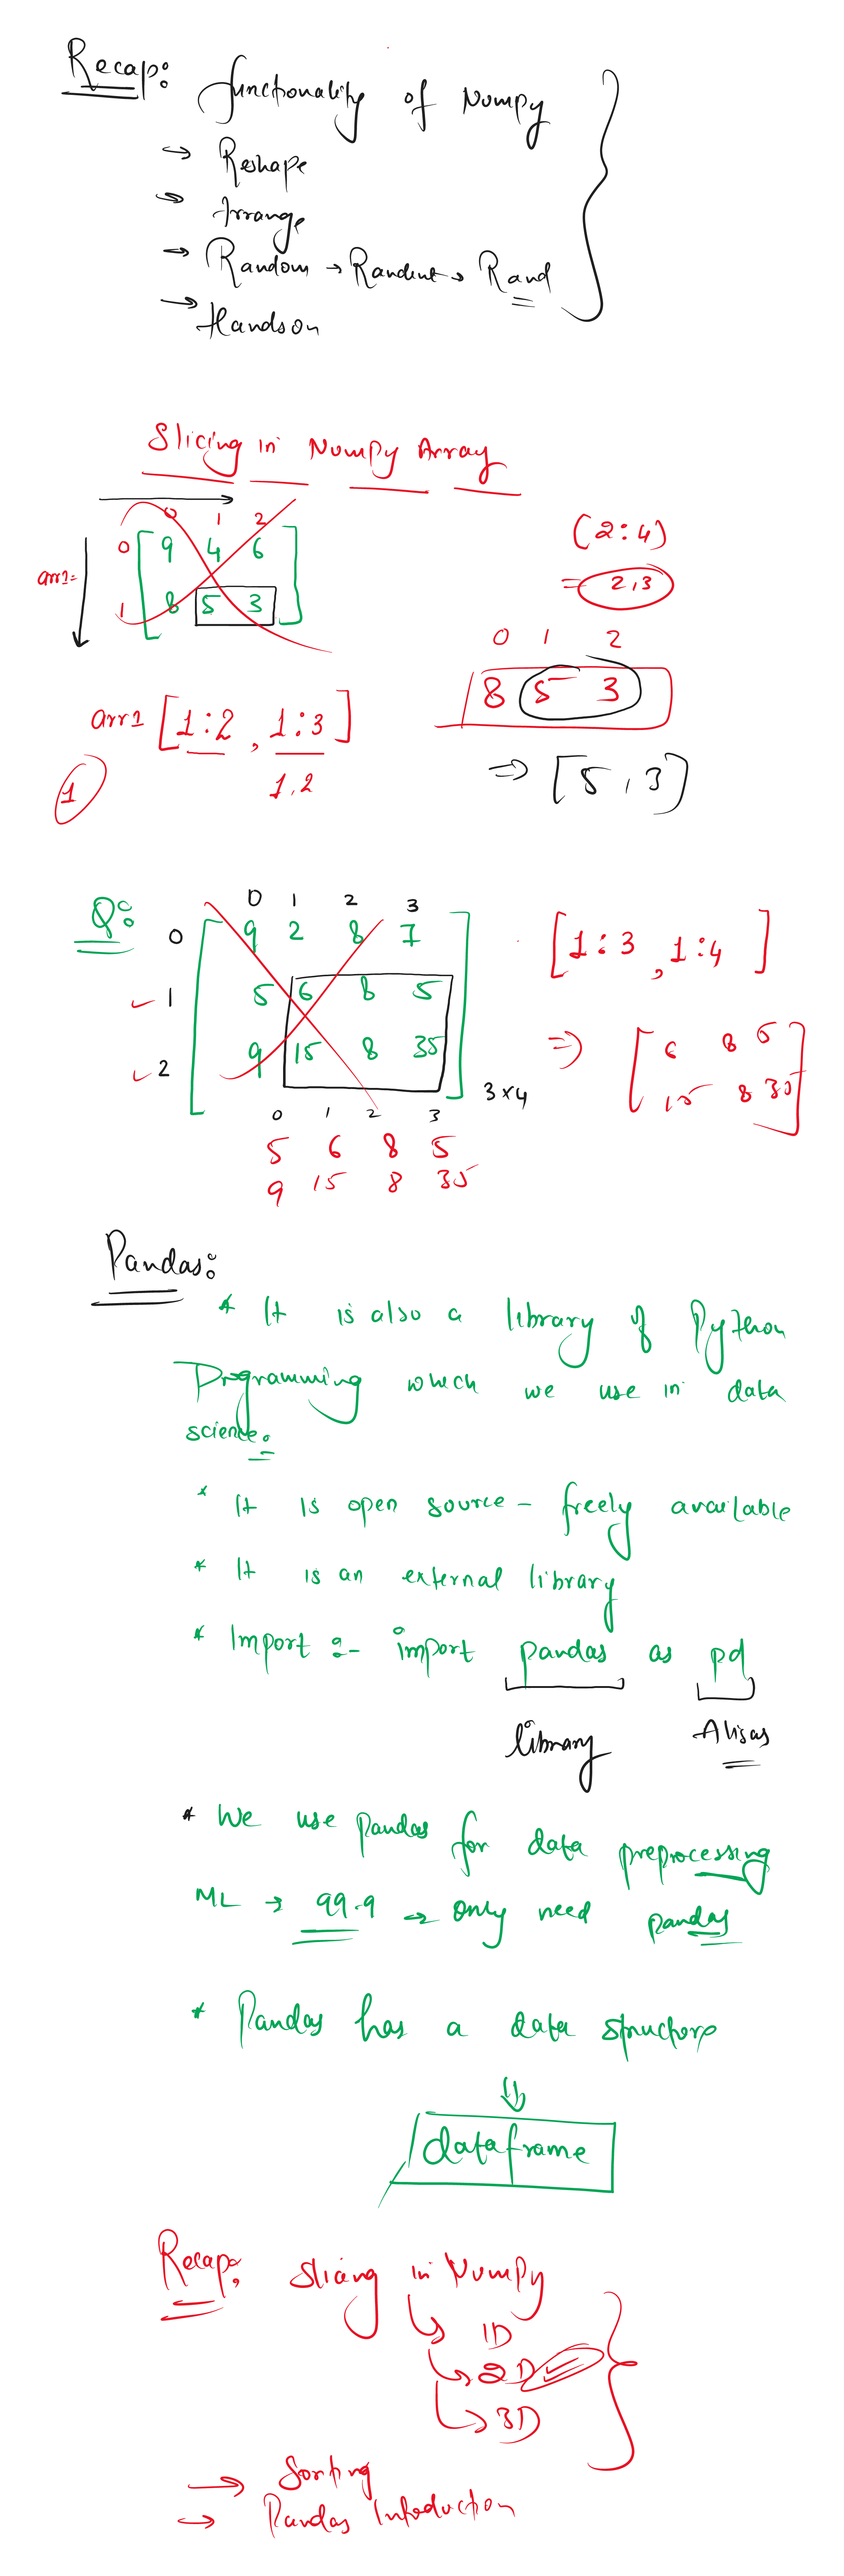 Recap: functionality of Numpy
→ Reshape
→ Arrange
→ Random → Randint → Rand
→ Handson
Slicing in Numpy Array
0 1 2
arr1= 0 [ 9 4 6 ]
1 [ 8 5 3 ]
(2:4)
= 2,3
0 1 2
8 5 3
⇒ [5, 3]
arr1 [1:2, 1:3]
1 1,2
Q: 0 1 2 3
0 9 2 8 7
1 5 6 8 5
2 9 15 8 35
3x4
[1:3, 1:4]
⇒ [ 6 8 5
15 8 35 ]
0 1 2 3
5 6 8 5
9 15 8 35
Pandas:
* It is also a library of Python
Programming which we use in data
science.
* It is open source - freely available
* It is an external library
* Import :- import pandas as pd
library Alisas
* We use pandas for data preprocessing
ML → 99.9 → only need pandas
* Pandas has a data structure
⇓
dataframe
Recap: Slicing in Numpy
→ 1D
→ 2D
→ 3D
→ Sorting
→ Pandas Introduction